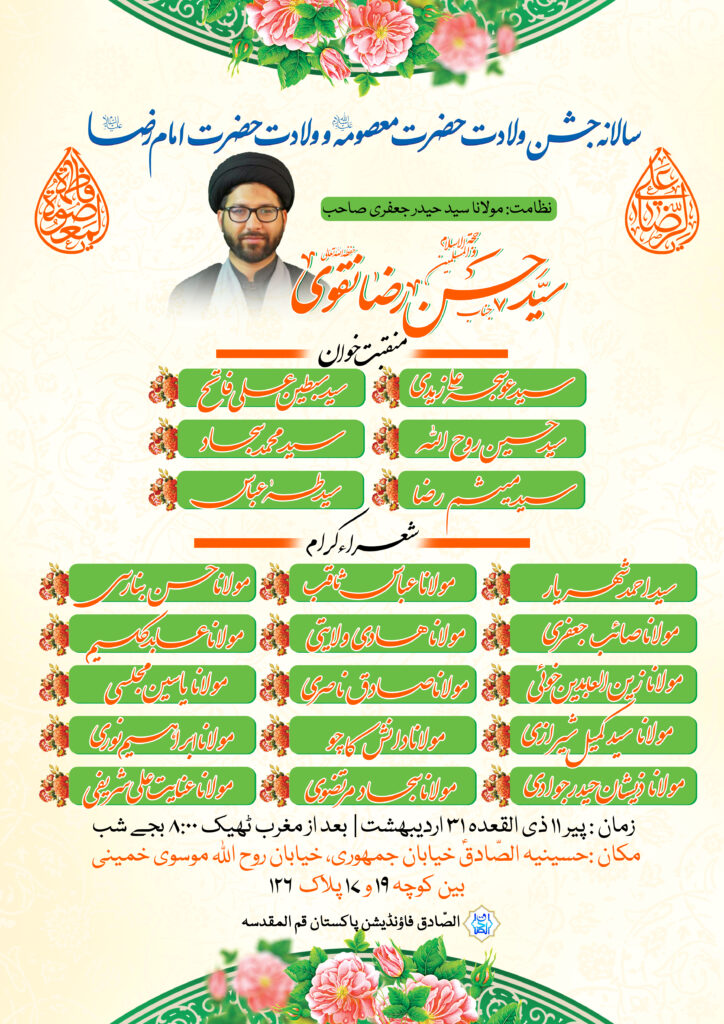 سالانہ جشن ولادت حضرت معصومہ و ولادت حضرت امام رضا
فاطمة المعصومة
علی الرضا
نظامت: مولانا سید حیدر جعفری صاحب
حجة الاسلام والمسلمین
حفظہ اللہ تعالی
جناب
سیّد حسن رضا نقوی
منقبت خوان
سید عوسجہ علی زیدی
سید سبطین علی فاتح
سید حسین روح اللہ
سید محمد سجاد
سید میثم رضا
سید طہٰ عباس
شعراء کرام
سید احمد شہریار
مولانا عباس ثاقب
مولانا حسن بنارسی
مولانا صائب جعفری
مولانا ھادی ولایتی
مولانا عابد حکیم
مولانا زین العابدین خوئی
مولانا صادق ناصری
مولانا یاسین مجلسی
مولانا سید کمیل شیرازی
مولانا دانش کاچو
مولانا ابراہیم نوری
مولانا ذیشان حیدر جوادی
مولانا سجاد مرتضوی
مولانا عنایت علی شریفی
زمان : پیر ۱۱ ذی القعدہ ۳۱ اردیبھشت | بعد از مغرب ٹھیک ۸:۰۰ بجے شب
مکان : حسینیہ الصّادقؑ خیابان جمهوری، خیابان روح اللہ موسوی خمینی
بین کوچہ ۱۹ و ۱۷ پلاک ۱۲۶
الصّادق فاؤنڈیشن پاکستان قم المقدسہ